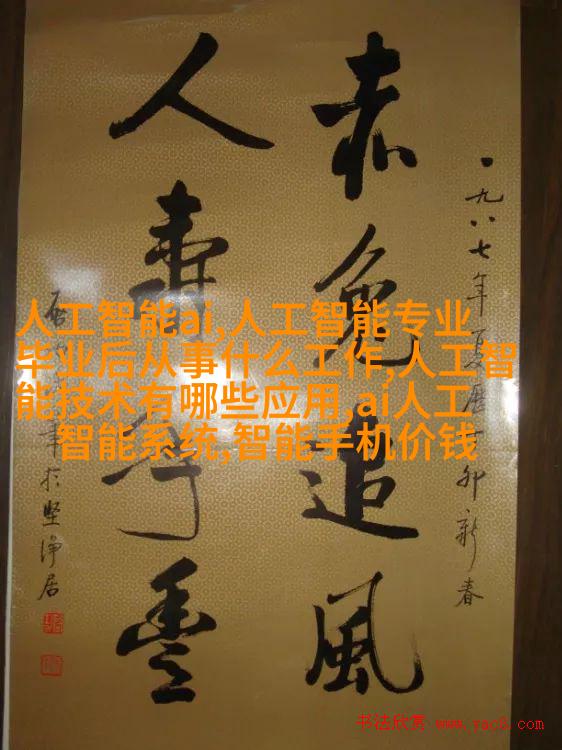 一九八七年夏历丁卯新春
赤兔追風
人寿年豐
启功 筆於坚净居
人工智能ai,人工智能专业
毕业后从事什么工作,人工智
能技术有哪些应用,ai人工
智能系统,智能手机价钱
书法欣赏 www.yac8.com